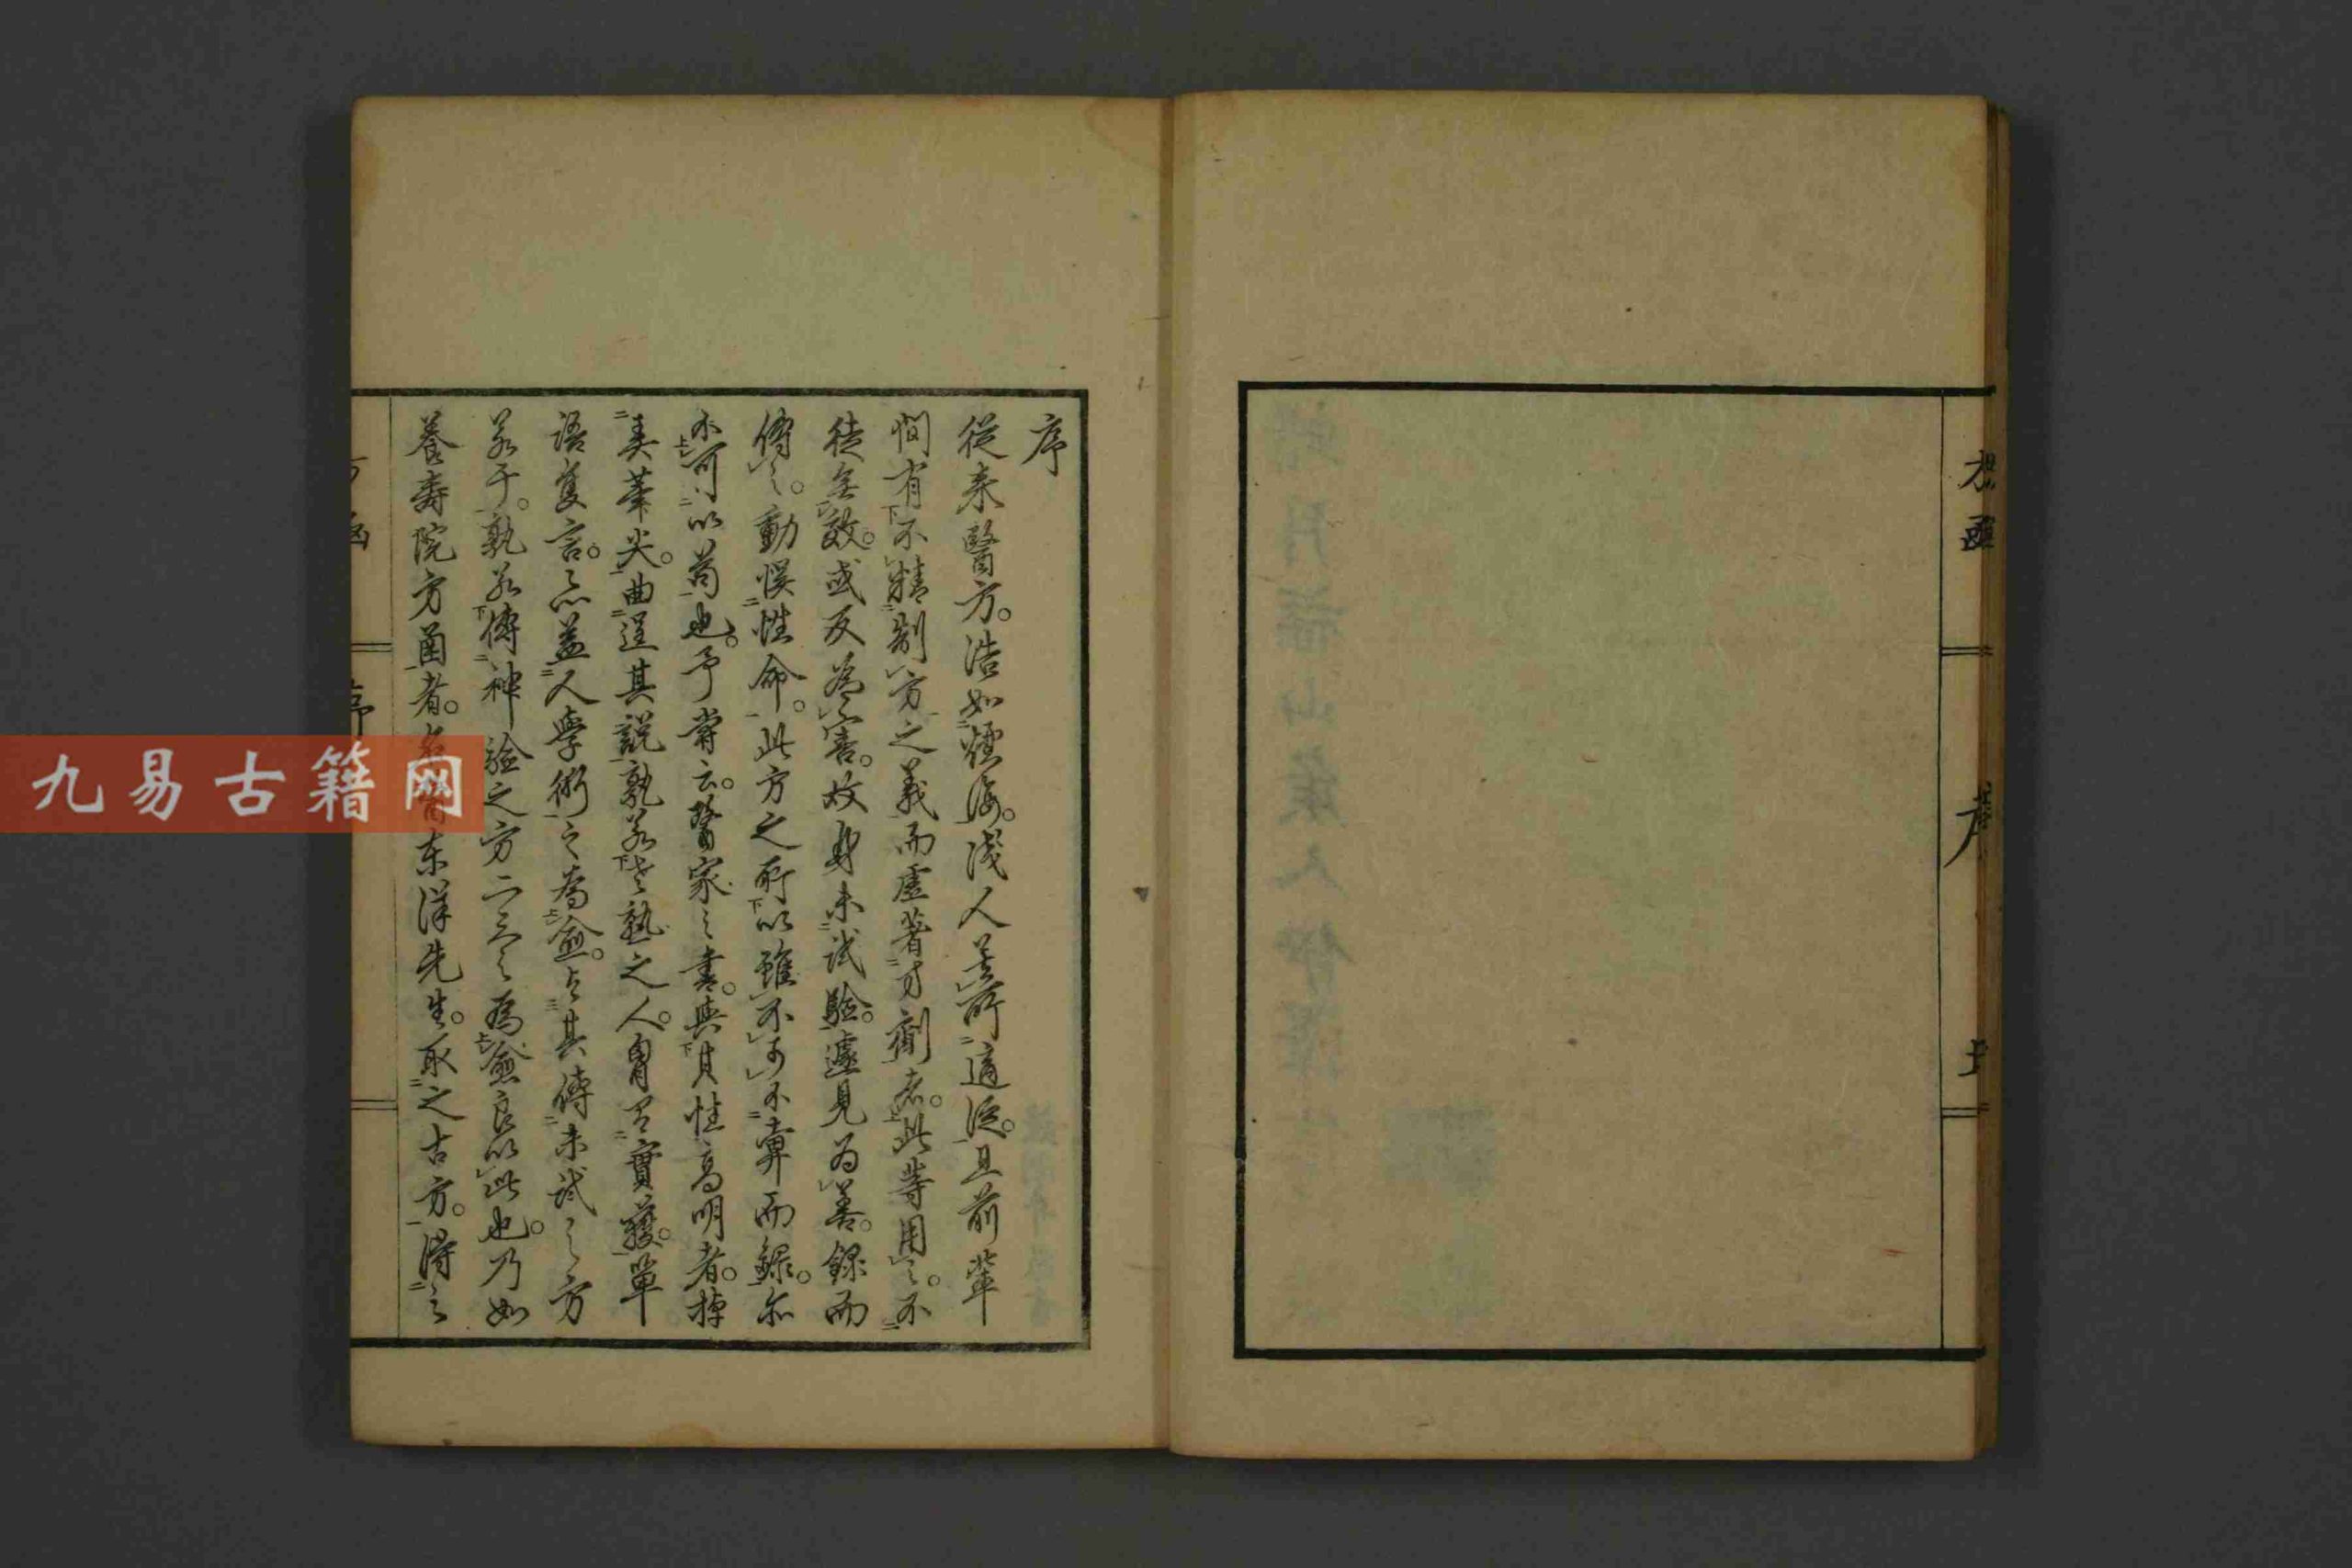 序
從来醫方。浩如煙海。淺人莫所適從。且前輩
間有不精制方之義而虛著方劑者。此等用之。不
徒無效。或反為害。故身未試驗。遽見為善。錄而
傳之。動悞性命。此方之所以雖不可不棄而錄。亦
不可以苟也。予嘗云。醫家之書。與其性高明者。掉
美筆尖。曲逞其說孰若老熟之人。胃實獲。單
語隻言。益人學術之為愈。與其傳未試之方
若干。孰若傳神驗之方一二之為愈良以此也。乃如
養壽院方函者。東洋先生。取之古方。得之
方函
序
九易古籍网
方函
序